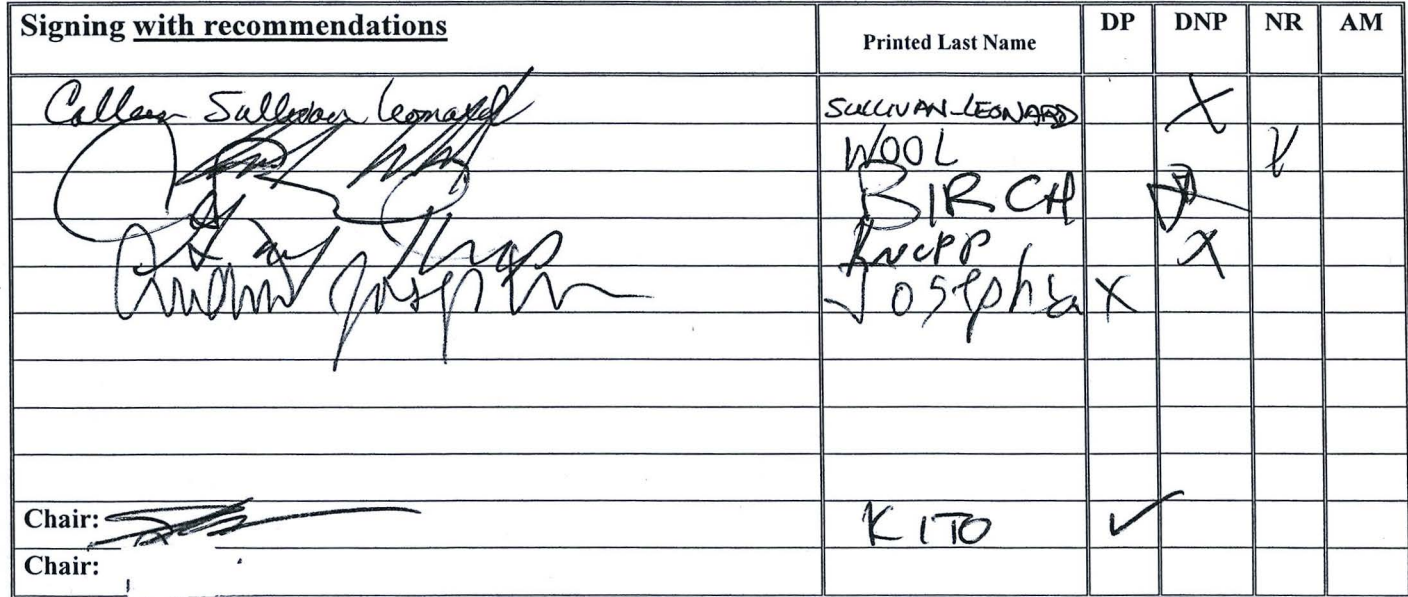 Signing with recommendations Printed Last Name DP DNP NR AM
Colleen Sullivan Leonard SULLIVAN-LEONARD X
WOOL
BIRCH
Knopp X
Josephson X
Chair: KITO ✓
Chair: